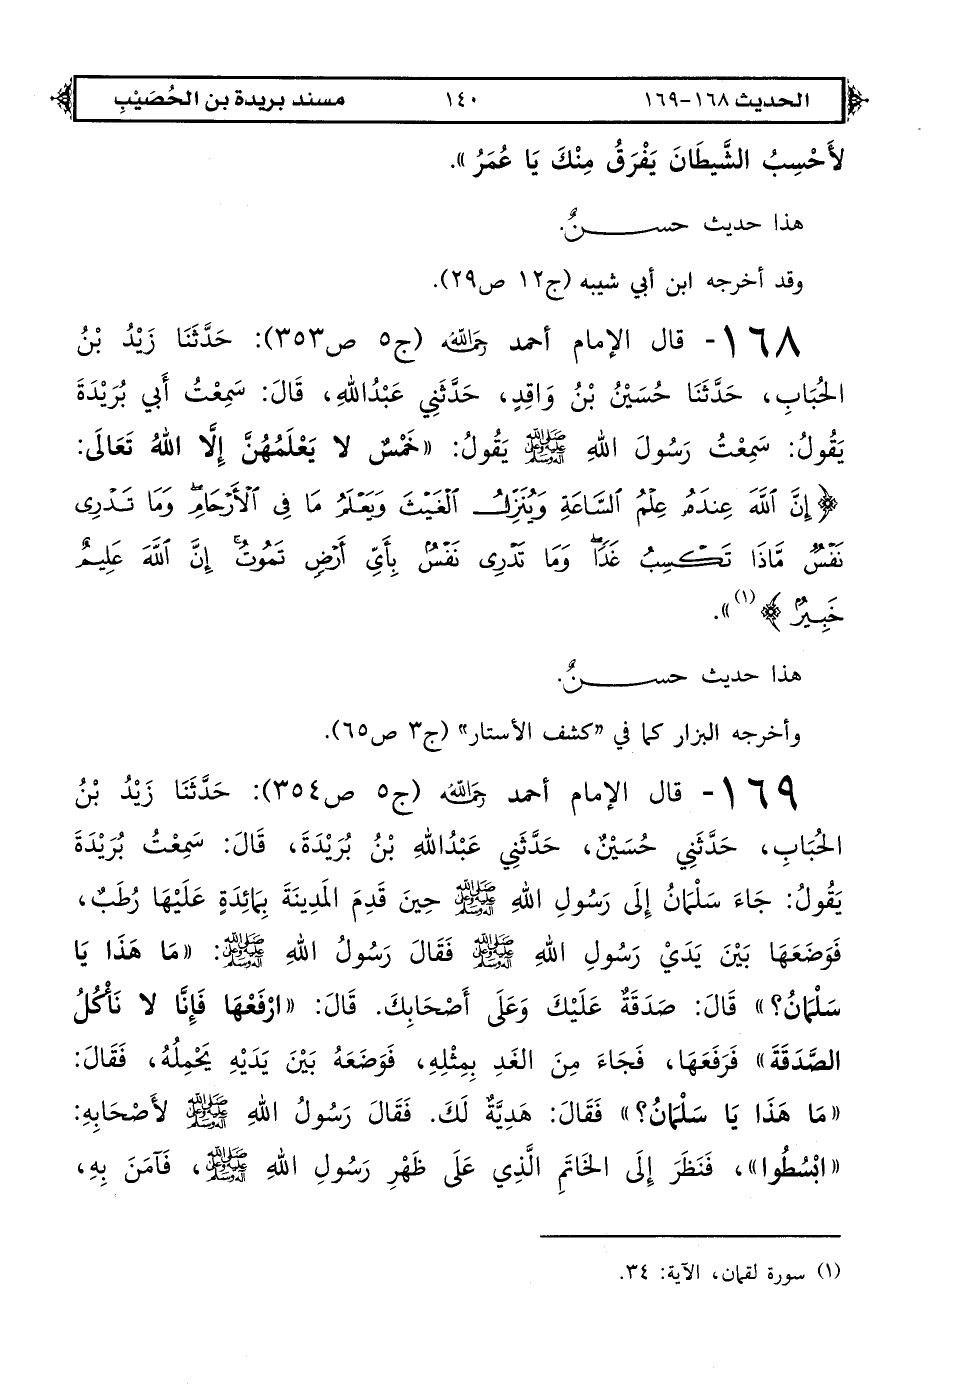 الحديث ١٦٨-١٦٩ ١٤٠ مسند بريدة بن الحُصَيْبِ
لأَحْسِبُ الشَّيطَانَ يَفْرَقُ مِنْكَ يَا عُمَرُ».
هذا حديث حســـنٌ.
وقد أخرجه ابن أبي شيبه (ج١٢ ص٢٩).
١٦٨- قال الإمام أحمد رَحِمَهُ اللهُ (ج٥ ص٣٥٣): حَدَّثَنَا زَيْدُ بْنُ
الحُبَابِ، حَدَّثَنَا حُسَيْنُ بْنُ وَاقِدٍ، حَدَّثَنِي عَبْدُاللهِ، قَالَ: سَمِعْتُ أَبِي بُرَيْدَةَ
يَقُولُ: سَمِعْتُ رَسُولَ اللهِ ﷺ يَقُولُ: «خَمْسٌ لا يَعْلَمُهُنَّ إِلَّا اللهُ تَعَالَى:
﴿إِنَّ ٱللَّهَ عِندَهُۥ عِلْمُ ٱلسَّاعَةِ وَيُنَزِّلُ ٱلْغَيْثَ وَيَعْلَمُ مَا فِى ٱلْأَرْحَامِۖ وَمَا تَدْرِى
نَفْسٌ مَّاذَا تَكْسِبُ غَدًاۖ وَمَا تَدْرِى نَفْسٌۢ بِأَىِّ أَرْضٍ تَمُوتُۚ إِنَّ ٱللَّهَ عَلِيمٌ
خَبِيرٌۢ﴾(١)».
هذا حديث حســـنٌ.
وأخرجه البزار كما في «كشف الأستار» (ج٣ ص٦٥).
١٦٩- قال الإمام أحمد رَحِمَهُ اللهُ (ج٥ ص٣٥٤): حَدَّثَنَا زَيْدُ بْنُ
الحُبَابِ، حَدَّثَنِي حُسَيْنٌ، حَدَّثَنِي عَبْدُاللهِ بْنُ بُرَيْدَةَ، قَالَ: سَمِعْتُ بُرَيْدَةَ
يَقُولُ: جَاءَ سَلْمَانُ إِلَى رَسُولِ اللهِ ﷺ حِينَ قَدِمَ المَدِينَةَ بِمَائِدَةٍ عَلَيْهَا رُطَبٌ،
فَوَضَعَهَا بَيْنَ يَدَيْ رَسُولِ اللهِ ﷺ فَقَالَ رَسُولُ اللهِ ﷺ: «مَا هَذَا يَا
سَلْمَانُ؟» قَالَ: صَدَقَةٌ عَلَيْكَ وَعَلَى أَصْحَابِكَ. قَالَ: «ارْفَعْهَا فَإِنَّا لا نَأْكُلُ
الصَّدَقَةَ» فَرَفَعَهَا، فَجَاءَ مِنَ الغَدِ بِمِثْلِهِ، فَوَضَعَهُ بَيْنَ يَدَيْهِ يَحْمِلُهُ، فَقَالَ:
«مَا هَذَا يَا سَلْمَانُ؟» فَقَالَ: هَدِيَّةٌ لَكَ. فَقَالَ رَسُولُ اللهِ ﷺ لأَصْحَابِهِ:
«ابْسُطُوا»، فَنَظَرَ إِلَى الخَاتَمِ الَّذِي عَلَى ظَهْرِ رَسُولِ اللهِ ﷺ، فَآمَنَ بِهِ،
(١) سورة لقمان، الآية: ٣٤.